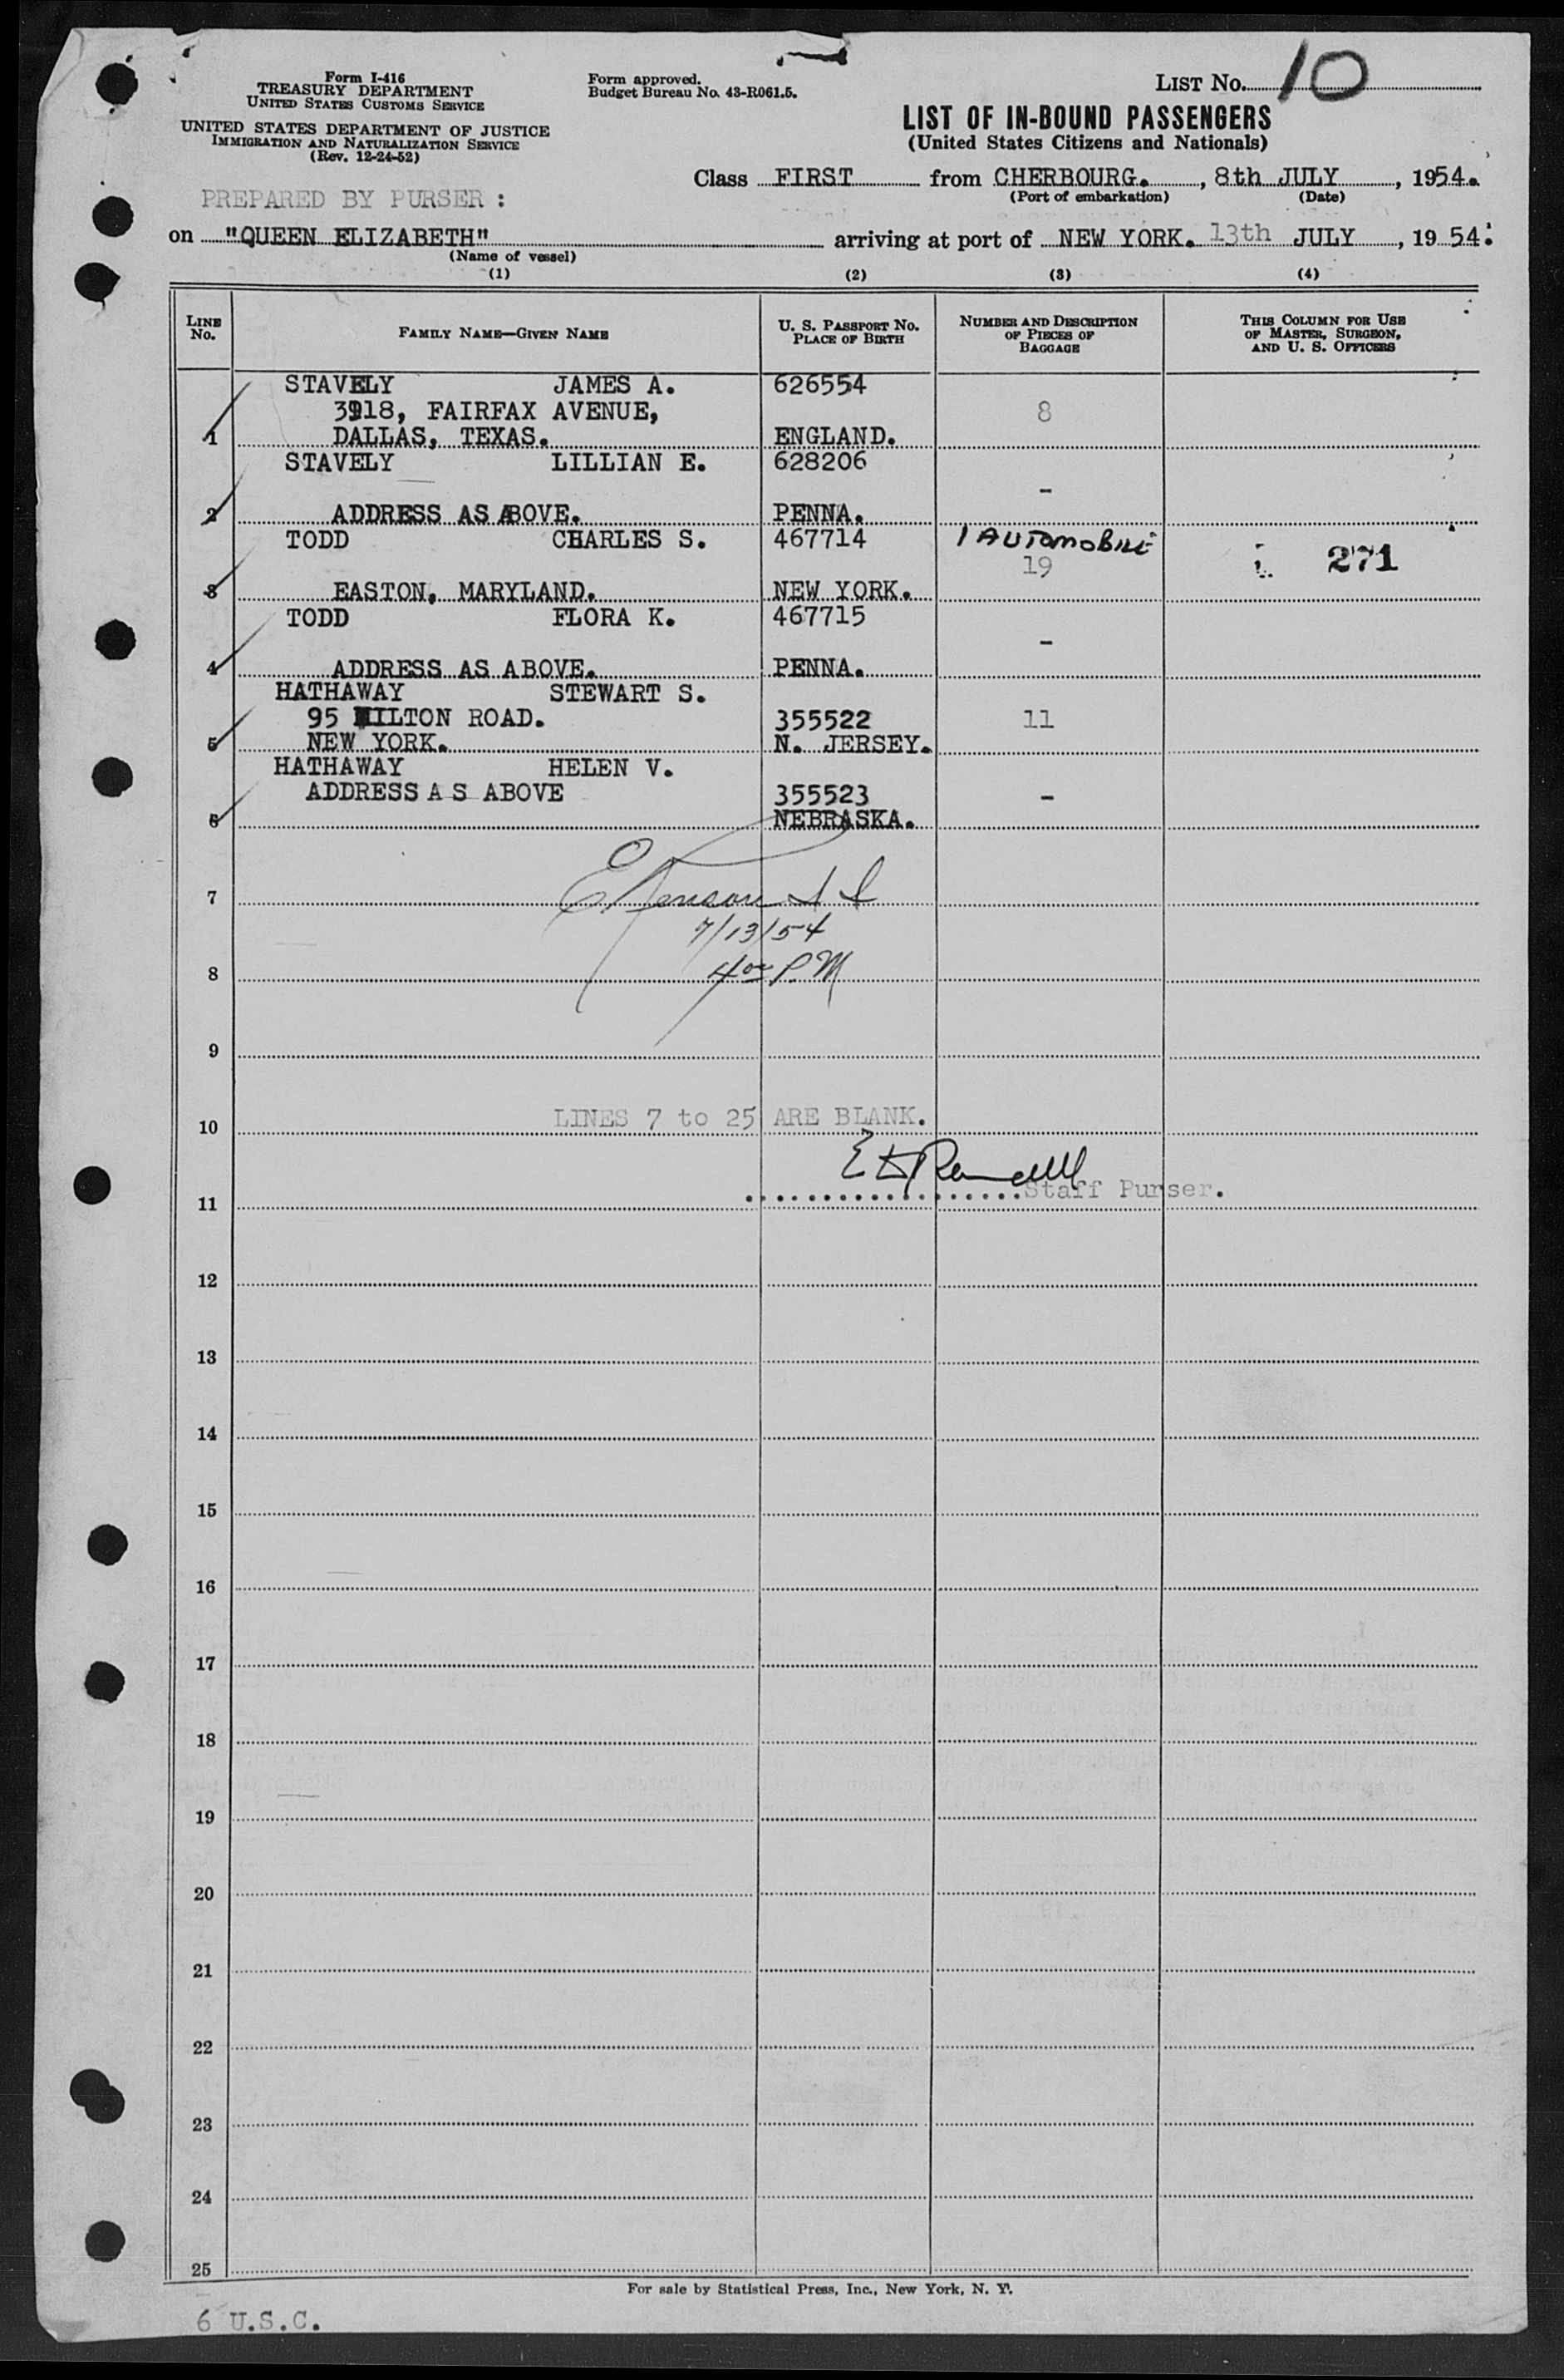 Form I-416
TREASURY DEPARTMENT
UNITED STATES CUSTOMS SERVICE
UNITED STATES DEPARTMENT OF JUSTICE
IMMIGRATION AND NATURALIZATION SERVICE
(Rev. 12-24-52)
Form approved.
Budget Bureau No. 43-R061.5.
LIST No. 10
LIST OF IN-BOUND PASSENGERS
(United States Citizens and Nationals)
Class FIRST from CHERBOURG. , 8th JULY , 1954.
(Port of embarkation) (Date)
PREPARED BY PURSER :
on "QUEEN ELIZABETH" arriving at port of NEW YORK. 13th JULY , 1954.
(Name of vessel)
(1) (2) (3) (4)
LINE No. FAMILY NAME—GIVEN NAME U. S. PASSPORT NO. PLACE OF BIRTH NUMBER AND DESCRIPTION OF PIECES OF BAGGAGE THIS COLUMN FOR USE OF MASTER, SURGEON, AND U. S. OFFICERS
STAVELY JAMES A. 626554
3918, FAIRFAX AVENUE, 8
1 DALLAS, TEXAS. ENGLAND.
STAVELY LILLIAN E. 628206
-
2 ADDRESS AS ABOVE. PENNA.
TODD CHARLES S. 467714 1 AUTOMOBILE
19 271
3 EASTON, MARYLAND. NEW YORK.
TODD FLORA K. 467715
-
4 ADDRESS AS ABOVE. PENNA.
HATHAWAY STEWART S.
95 MILTON ROAD. 355522 11
5 NEW YORK. N. JERSEY.
HATHAWAY HELEN V.
ADDRESS A S ABOVE 355523 -
6 NEBRASKA.
7
7/13/54
8 4 00 PM
9
10 LINES 7 to 25 ARE BLANK.
11 Staff Purser.
12
13
14
15
16
17
18
19
20
21
22
23
24
25
For sale by Statistical Press, Inc., New York, N. Y.
6 U.S.C.